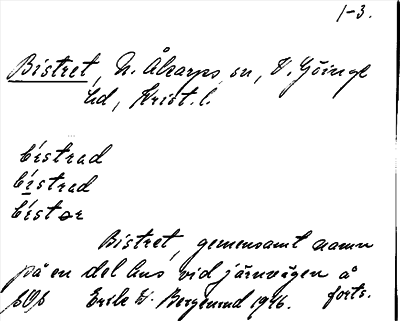 1-3.
Bistret, N. Åkarps sn, V. Göinge
hd, Krist. l.
bístrad
bístrad
bístər
Bistret, gemensamt namn
på en del hus vid järnvägen å
forts.
Erik W. Bergerund 1946.